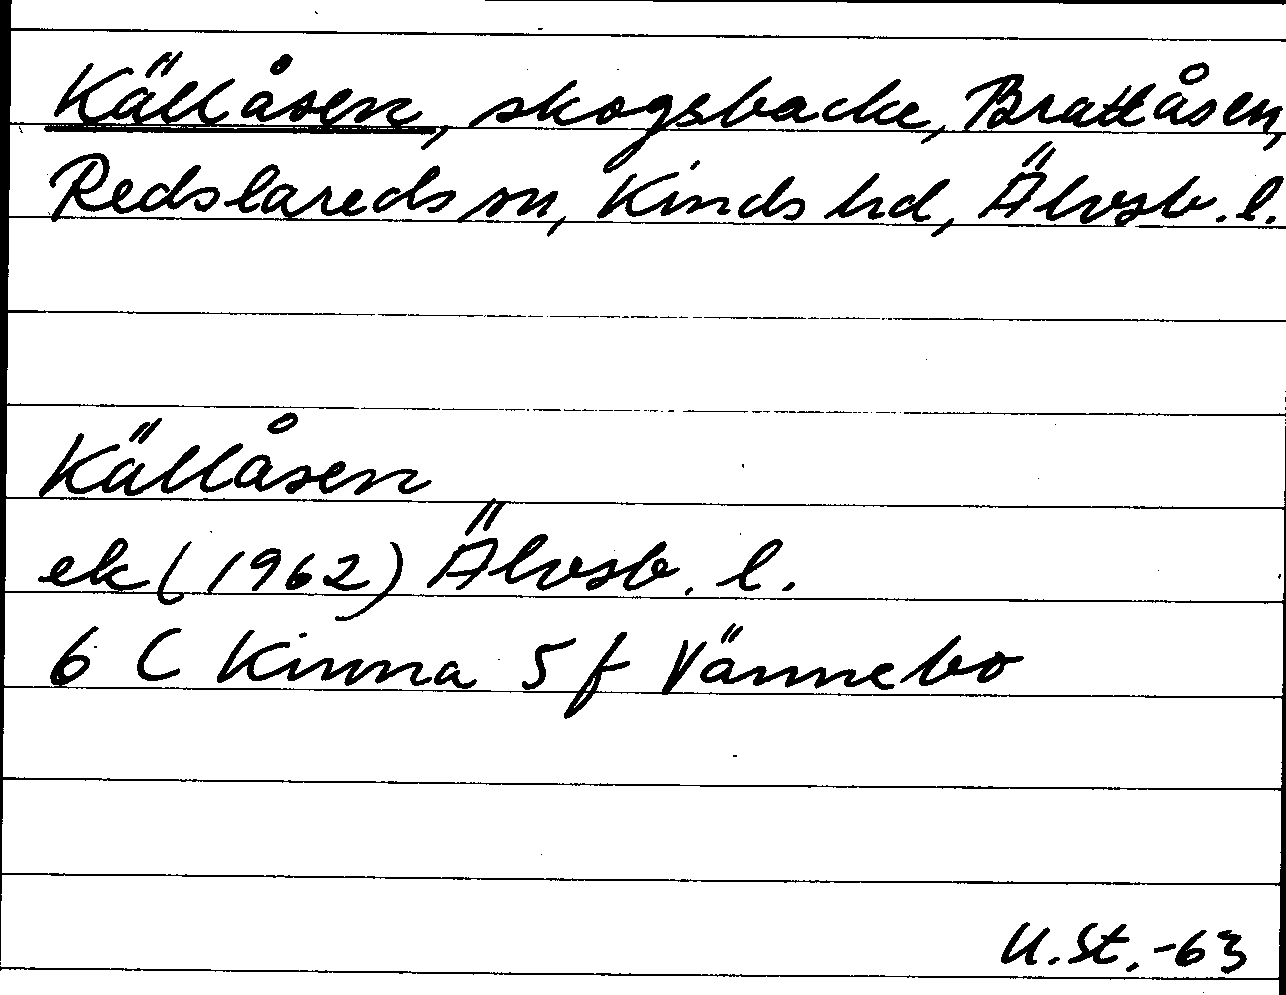 Källåsen, skogsbacke, Brattåsen,
Redslareds sn, Kinds hd, Älvsb. l.
Källåsen
ek (1962) Älvsb. l.
6 C Kinna 5 f Vännebo
U.St.-63